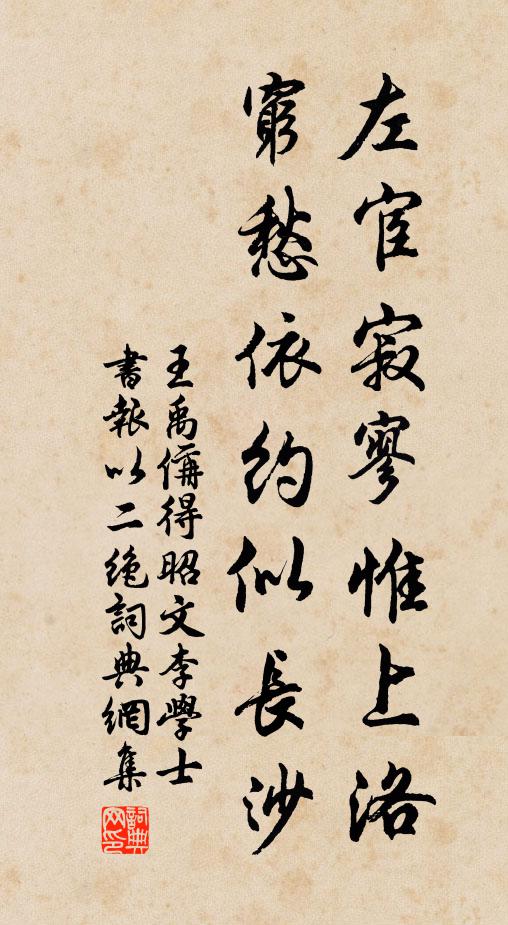 左宦寂寥惟上洛
窮愁依約似長沙
王禹偁得昭文李學士
書報以二絶詞典網集
詞典网印